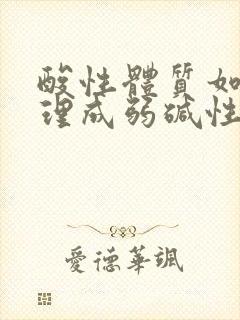 酸性體質如
理成弱碱性
愛德華颯